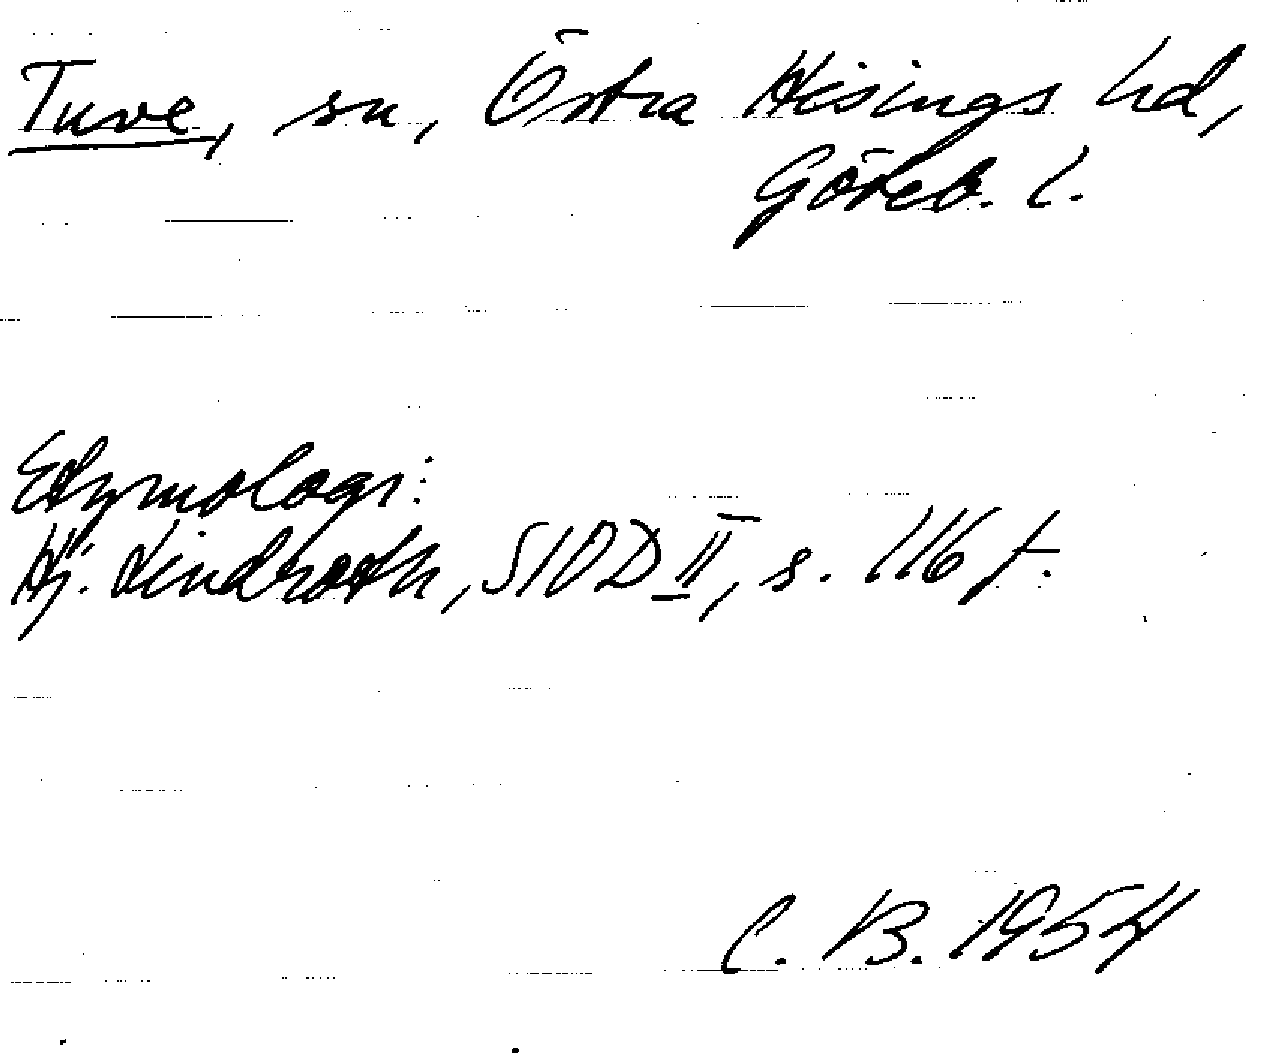 Tuve, sn, Östra Hisings hd,
Göteb. l.
Etymologi:
Hj. Lindroth, SIOD II, s. 116 f.
C. B. 1954